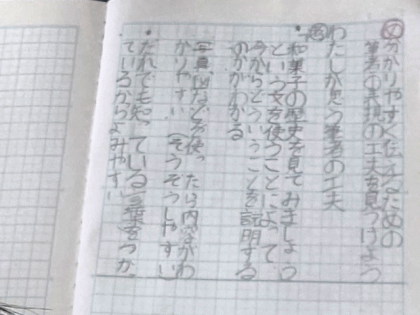 め 分かりやすく伝えるための
筆者の表現の工夫を見つけよう
わたしが思う筆者の工夫
・和菓子の歴史を見てみましょう
という文を使うことによって、
今からどういうことを説明する
のかがわかる
写真、図などを使ったら内ようがわ
かりやすい(そうぞうしやすい)
・だれでも知っている言葉をつか
ているからよみやすい